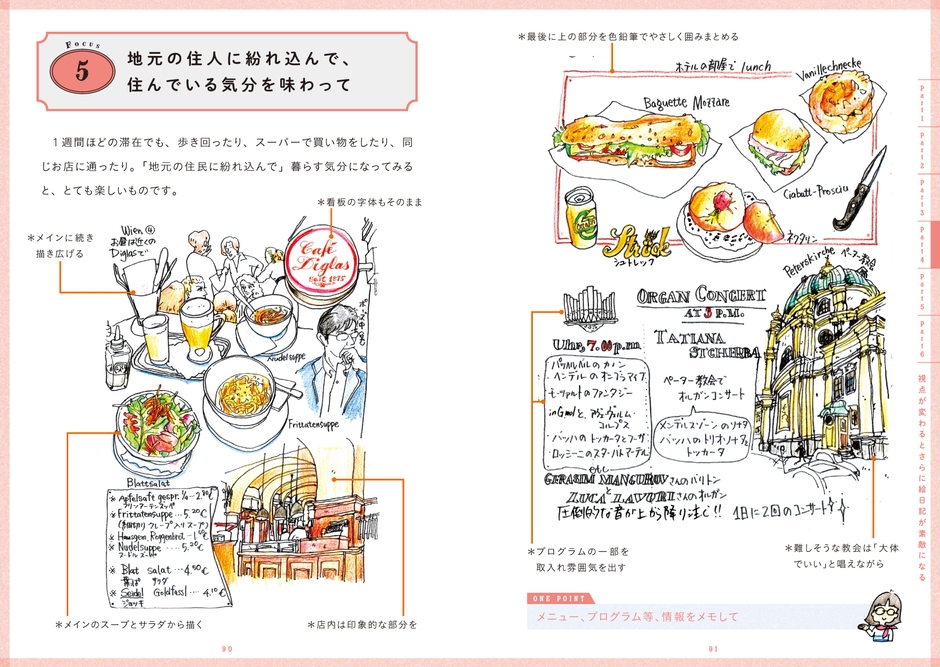 Focus
5
地元の住人に紛れ込んで、
住んでいる気分を味わって
1週間ほどの滞在でも、歩き回ったり、スーパーで買い物をしたり、同
じお店に通ったり。「地元の住民に紛れ込んで」暮らす気分になってみる
と、とても楽しいものです。
*看板の字体もそのまま
*メインに続き
描き広げる
Wien ④
お昼は近くの
Diglasで
Café
Diglas
SEIT 1875
Nudelsuppe
Frittatensuppe
Blattsalat
* Apfelsafe gespr. ¼…2.90€
* Frittatensuppe…5.20€
(細切りクレープ入りスープ)
* Nudelsuppe ….5.20€
ヌードルスープ
* Blat salat …4.50€
葉っぱ サラダ
* Seidel Goldfassl …. 4.10€
ジョッキ
*メインのスープとサラダから描く
*店内は印象的な部分を
90
*最後に上の部分を色鉛筆でやさしく囲みまとめる
ホテルの部屋で lunch
Vanillechnecke
Baguette Mozzare
Ciabatt-Prosciu
ネクタリン
Strude
シュトレック
Peterskirche ペーター教会
ORGAN CONCERT
AT 3 P.M.
TATIANA
STCHERBA
Uhr, 7.00 p.m
・パッヘルベルのカノン
・ヘンデルのオンブラマイフ
・モーツァルトのファンタジー
in Gmollと、アヴェヴェルム
コルプス
・バッハのトッカータとフーガ
・ロッシーニのスターバトマーテル
etc
ペーター教会で
オルガンコンサート
メンデルスゾーンのソナタ
バッハのトリオソナタ
トッカータ
GERASIM MANGUROV さんのバリトン
と
LUCA LAVURI さんのオルガン
圧倒的な音が上から降り注ぐ!! 1日に2回のコンサート
*プログラムの一部を
取入れ雰囲気を出す
*難しそうな教会は「大体
でいい」と唱えながら
ONE POINT
メニュー、プログラム等、情報をメモして
91
Part1
Part2
Part3
Part4
Part5
Part6
視点が変わるとさらに絵日記が素敵になる